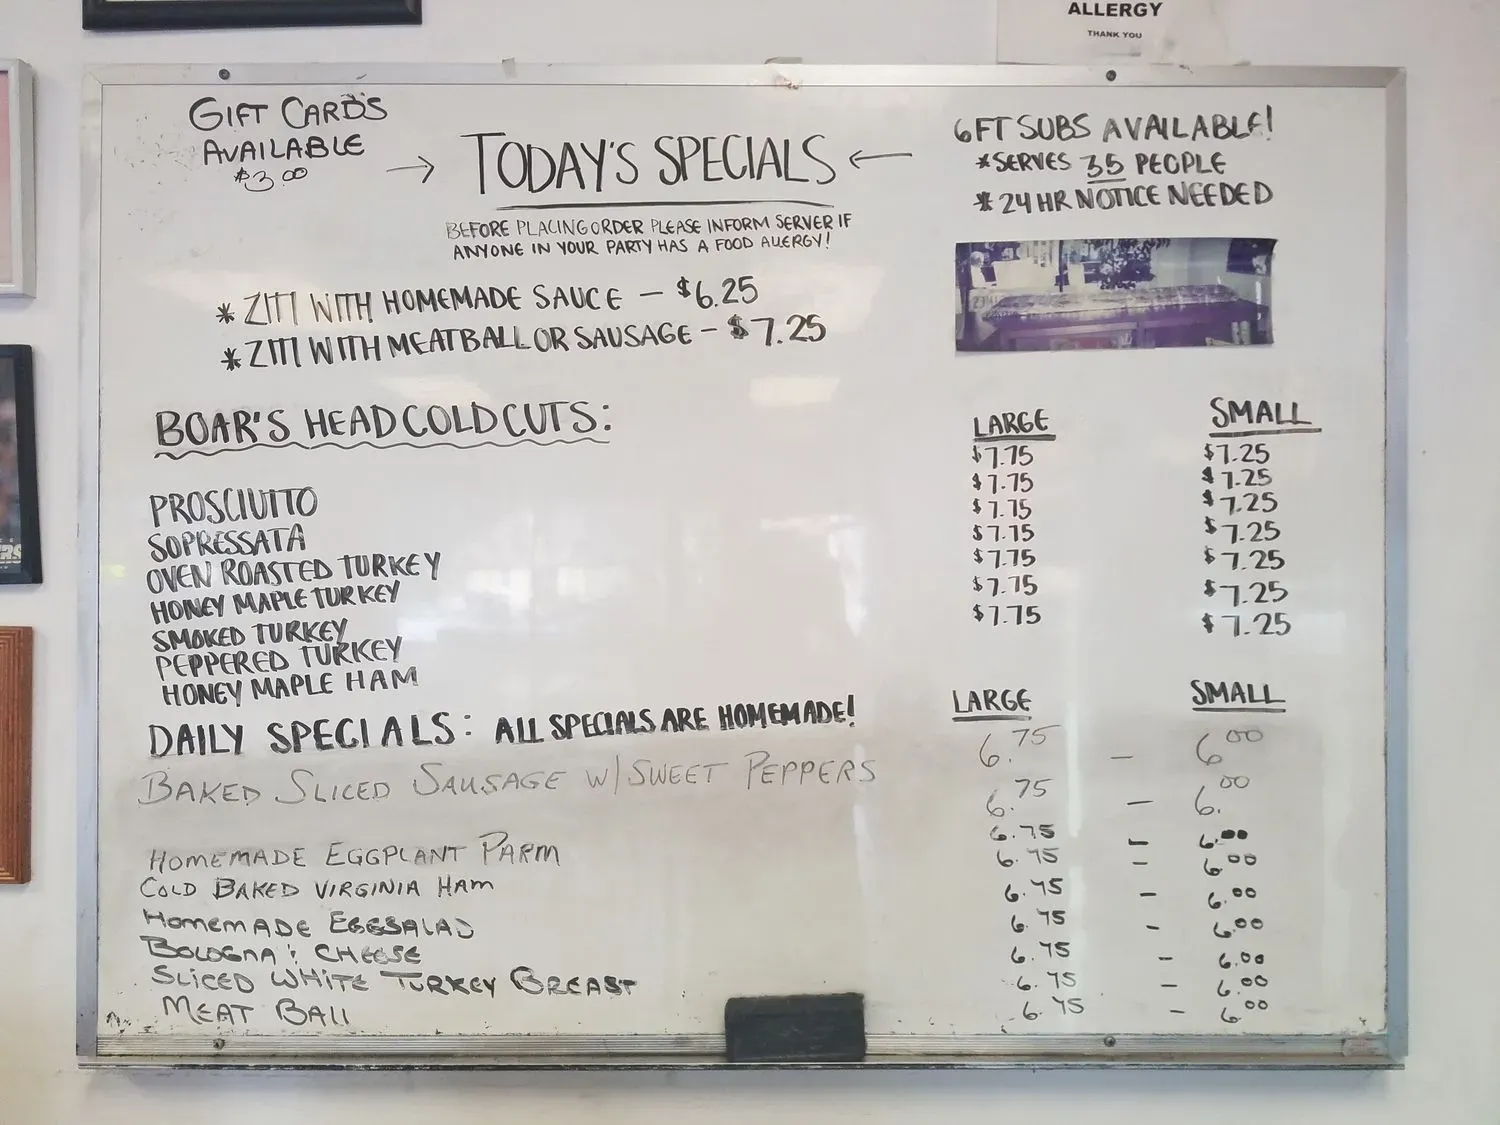 ALLERGY
THANK YOU
GIFT CARDS
AVAILABLE
$3.00
→ TODAY'S SPECIALS ←
BEFORE PLACING ORDER PLEASE INFORM SERVER IF
ANYONE IN YOUR PARTY HAS A FOOD ALLERGY!
6FT SUBS AVAILABLE!
*SERVES 35 PEOPLE
* 24 HR NOTICE NEEDED
* ZITI WITH HOMEMADE SAUCE — $6.25
* ZITI WITH MEATBALL OR SAUSAGE — $7.25
BOAR'S HEAD COLD CUTS:
LARGE SMALL
$7.75 $7.25
$7.75 $7.25
$7.75 $7.25
$7.75 $7.25
$7.75 $7.25
$7.75 $7.25
$7.75 $7.25
PROSCIUITTO
SOPRESSATA
OVEN ROASTED TURKEY
HONEY MAPLE TURKEY
SMOKED TURKEY
PEPPERED TURKEY
HONEY MAPLE HAM
DAILY SPECIALS: ALL SPECIALS ARE HOMEMADE!
LARGE SMALL
BAKED SLICED SAUSAGE W/ SWEET PEPPERS
HOMEMADE EGGPLANT PARM
COLD BAKED VIRGINIA HAM
HOMEMADE EGGSALAD
BOLOGNA & CHEESE
SLICED WHITE TURKEY BREAST
MEAT BALL
6.75 — 6.00
6.75 — 6.00
6.75 — 6.00
6.75 — 6.00
6.75 — 6.00
6.75 — 6.00
6.75 — 6.00
6.75 — 6.00
6.75 — 6.00